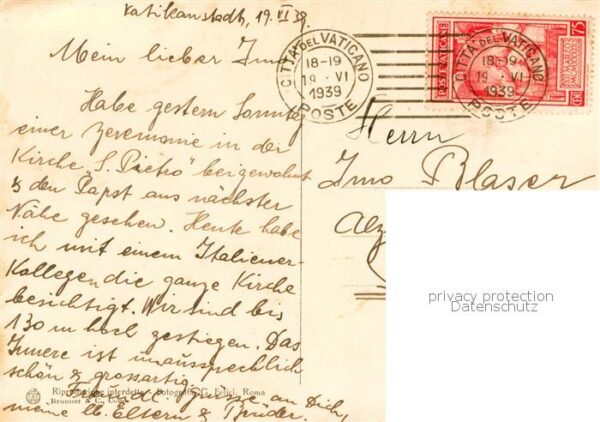 Vatikanstadt, 19.VI 39.
Mein lieber Imo
Habe gestern Sonntag
einer Zeremonie in der
Kirche „S. Pietro" beigewohnt
& den Papst aus nächster
Nähe gesehen. Heute habe
ich mit einem Italiener-
Kollegen die ganze Kirche
besichtigt. Wir sind bis
130 m hoch gestiegen. Das
Innere ist unaussprechlich
schön & grossartig.
Grüsse an Dich,
meine lb. Eltern & Brüder.
CITTÀ DEL VATICANO
18-19
19 · VI
1939
POSTE
CITTÀ DEL VATICANO
18-19
19 · VI
1939
POSTE
POSTE VATICANE
Herrn
Imo Blaser
Alz
privacy protection
Datenschutz
Riproduzione interdetta - Fotografia G. Felici, Roma
Brunner & C.,